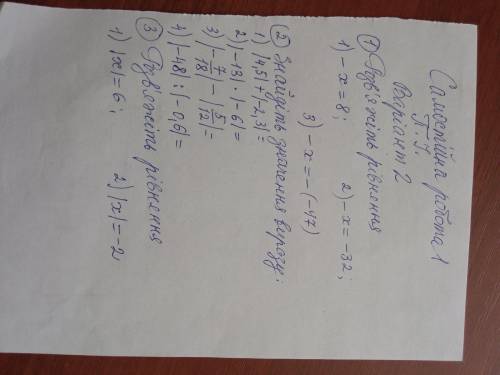 Самостійна робота 1
Т. 1.
Варіант 2
① Розв'яжіть рівняння
1) -x = 8; 2) -x = -32;
3) -x = -(-47)
② Знайдіть значення виразу:
1) |4,5| + |-2,3| =
2) |-13| · |-6| =
3) |-7/18| - |5/12| =
4) |-48| : |-0,6| =
③ Розв'яжіть рівняння
1) |x| = 6; 2) |x| = -2